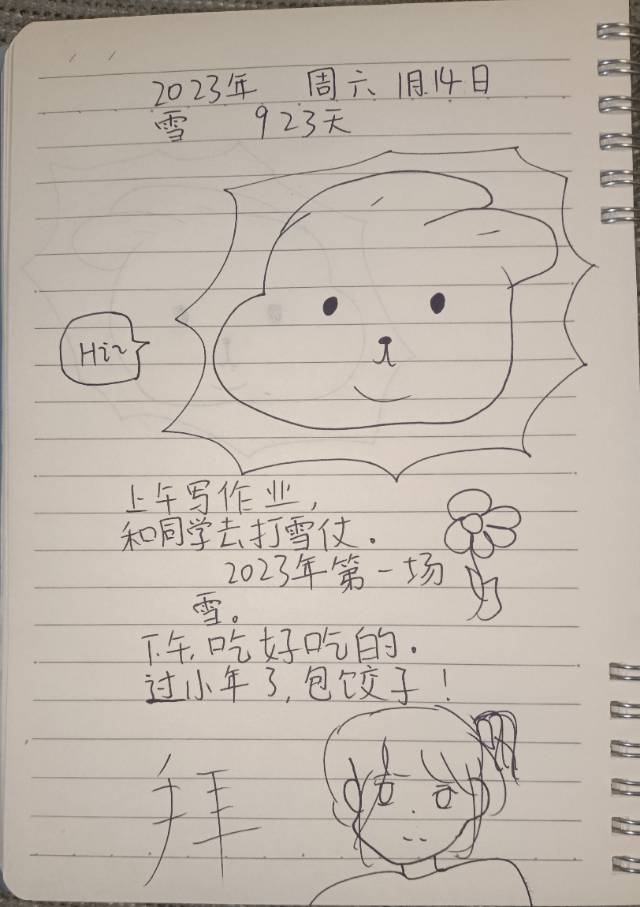 2023年 周六 1月14日
雪 923天
Hi~
上午写作业，
和同学去打雪仗.
2023年第一场
雪。
下午,吃好吃的.
过小年了,包饺子!
拜